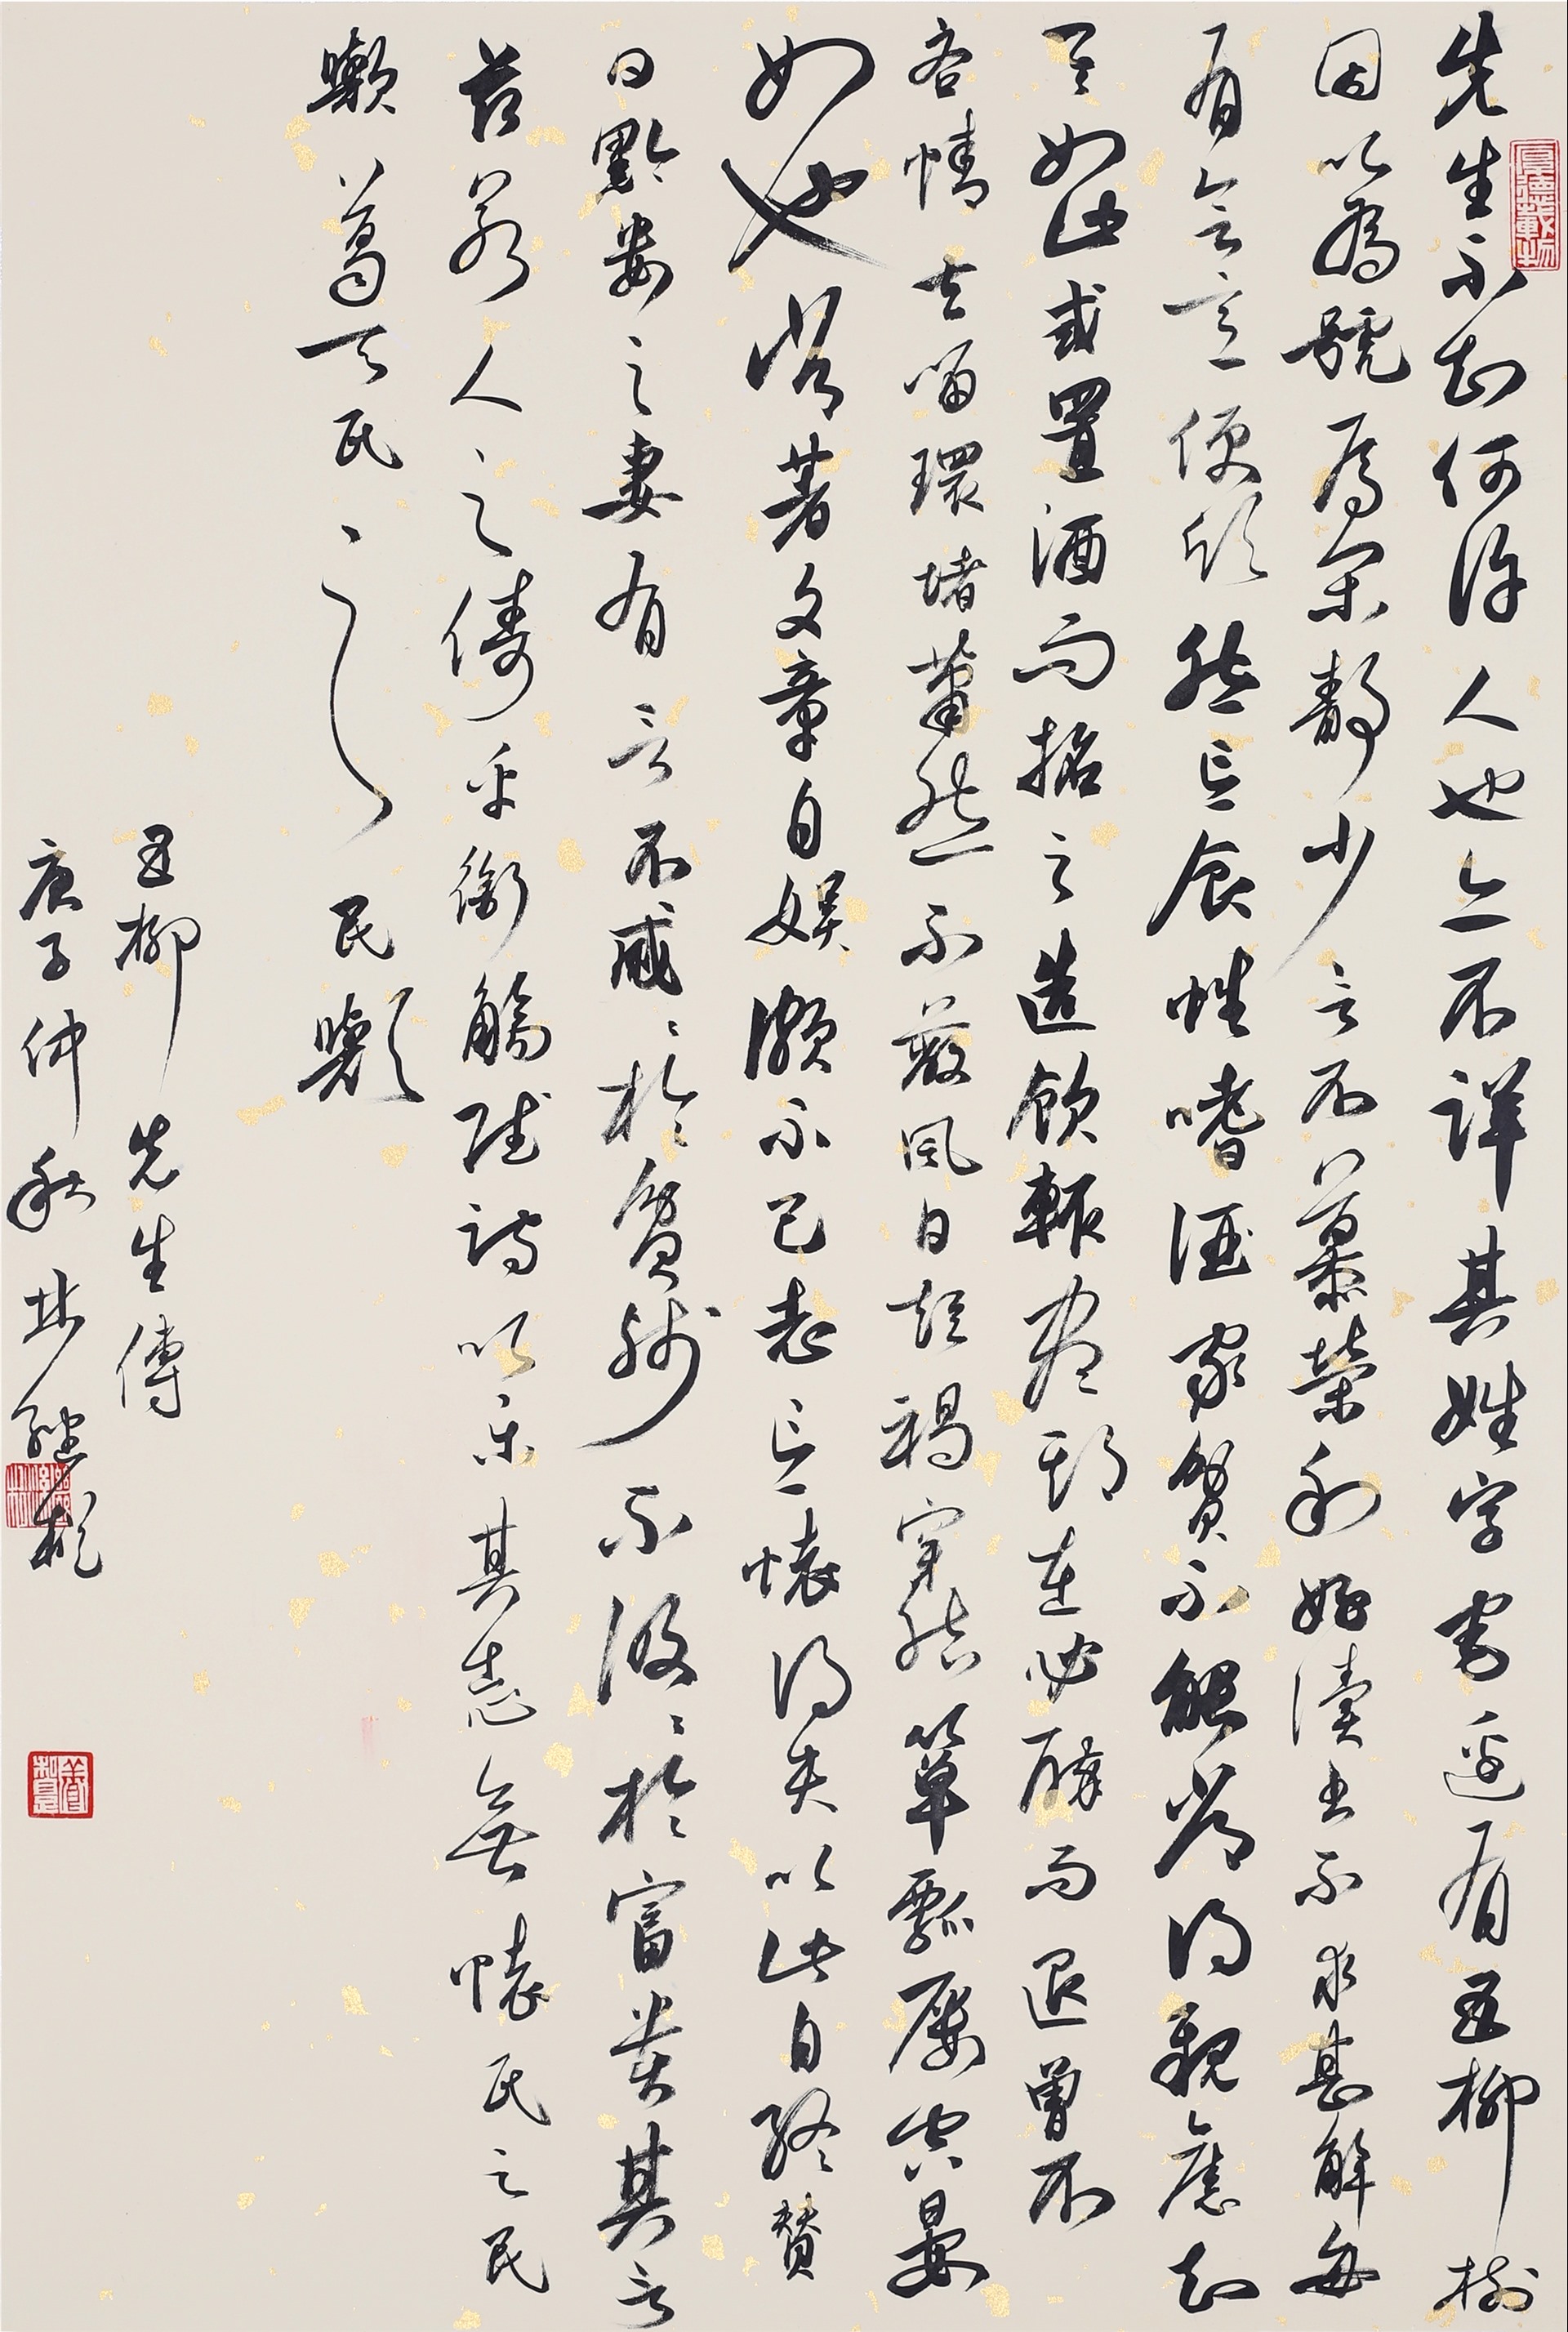 先生不知何許人也亦不詳其姓字宅邊有五柳樹
因以為號焉閑靜少言不慕榮利好讀書不求甚解每
有會意便欣然忘食性嗜酒家貧不能常得親舊知
其如此或置酒而招之造飲輒盡期在必醉而退曾不
吝情去留環堵蕭然不蔽風日短褐穿結簞瓢屢空晏
如也常著文章自娛頗示己志忘懷得失以此自終贊
曰黔婁之妻有言不戚戚於貧賤不汲汲於富貴其言
茲若人之儔乎銜觴賦詩以樂其志無懷氏之民
歟葛天氏之民歟
五柳先生傳
庚子仲秋
厚德載物